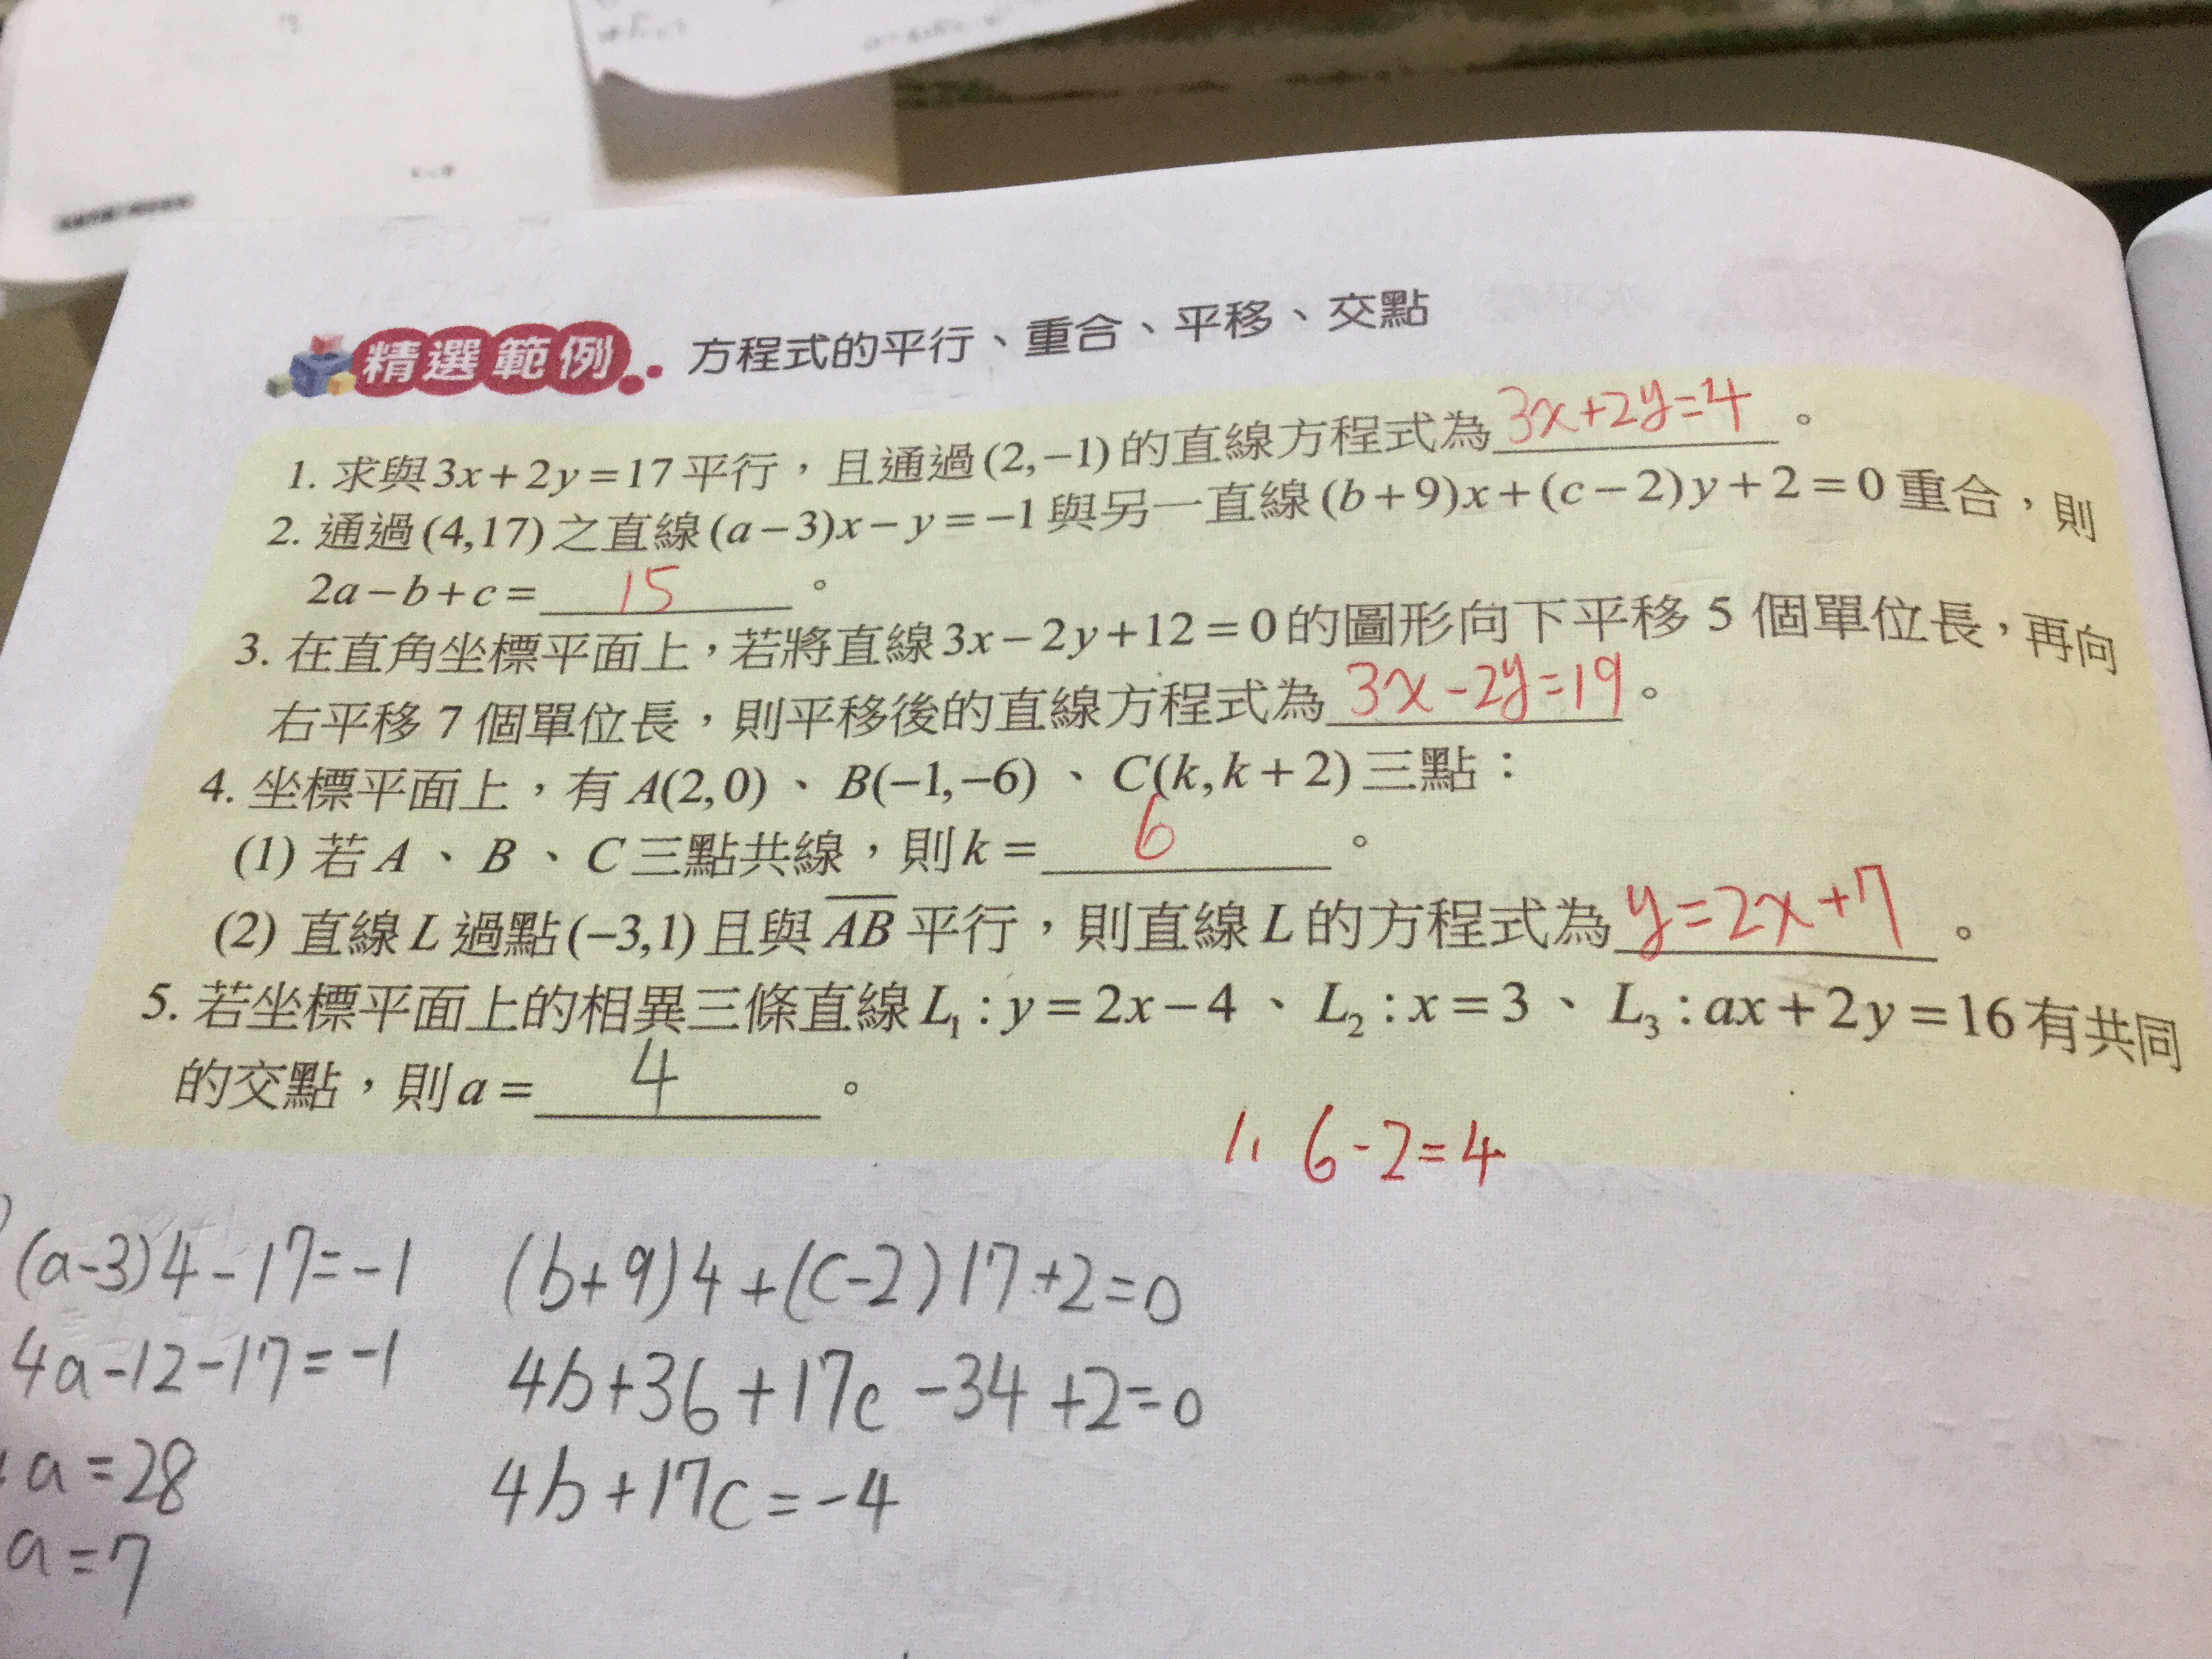 精選範例 方程式的平行、重合、平移、交點
1. 求與3x+2y=17平行，且通過(2,-1)的直線方程式為 3x+2y=4 。
2. 通過(4,17)之直線(a-3)x-y=-1與另一直線(b+9)x+(c-2)y+2=0重合，則
2a-b+c= 15 。
3. 在直角坐標平面上，若將直線3x-2y+12=0的圖形向下平移 5 個單位長，再向
右平移 7 個單位長，則平移後的直線方程式為 3x-2y=19 。
4. 坐標平面上，有 A(2,0)、B(-1,-6)、C(k,k+2)三點：
(1) 若 A、B、C三點共線，則k= 6 。
(2) 直線L過點(-3,1)且與 \overline{AB} 平行，則直線L的方程式為 y=2x+7 。
5. 若坐標平面上的相異三條直線L₁:y=2x-4、L₂:x=3、L₃:ax+2y=16有共同
的交點，則a= 4 。
1. 6-2=4
(a-3)4-17=-1 (b+9)4+(c-2)17+2=0
4a-12-17=-1 4b+36+17c-34+2=0
a=28 4b+17c=-4
a=7